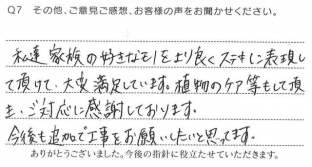 Q7 その他、ご意見ご感想、お客様の声をお聞かせください。
私達家族の好きなモノをより良くステキに表現し
て頂けて、大変満足しています。植物のケア等もして頂
き、ご対応に感謝しております。
今後も追加で工事をお願いしたいと思ってます。
ありがとうございました。今後の指針に役立たせていただきます。